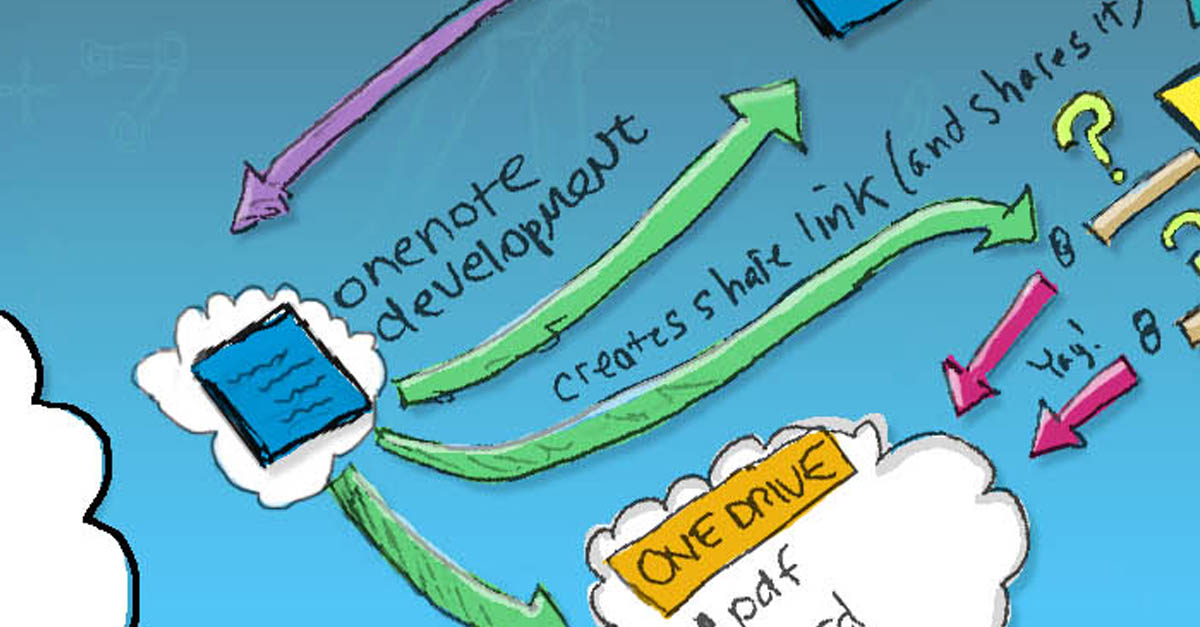 onenote
development
creates share link (and shares it)
?
?
Yay!
ONE DRIVE
pdf